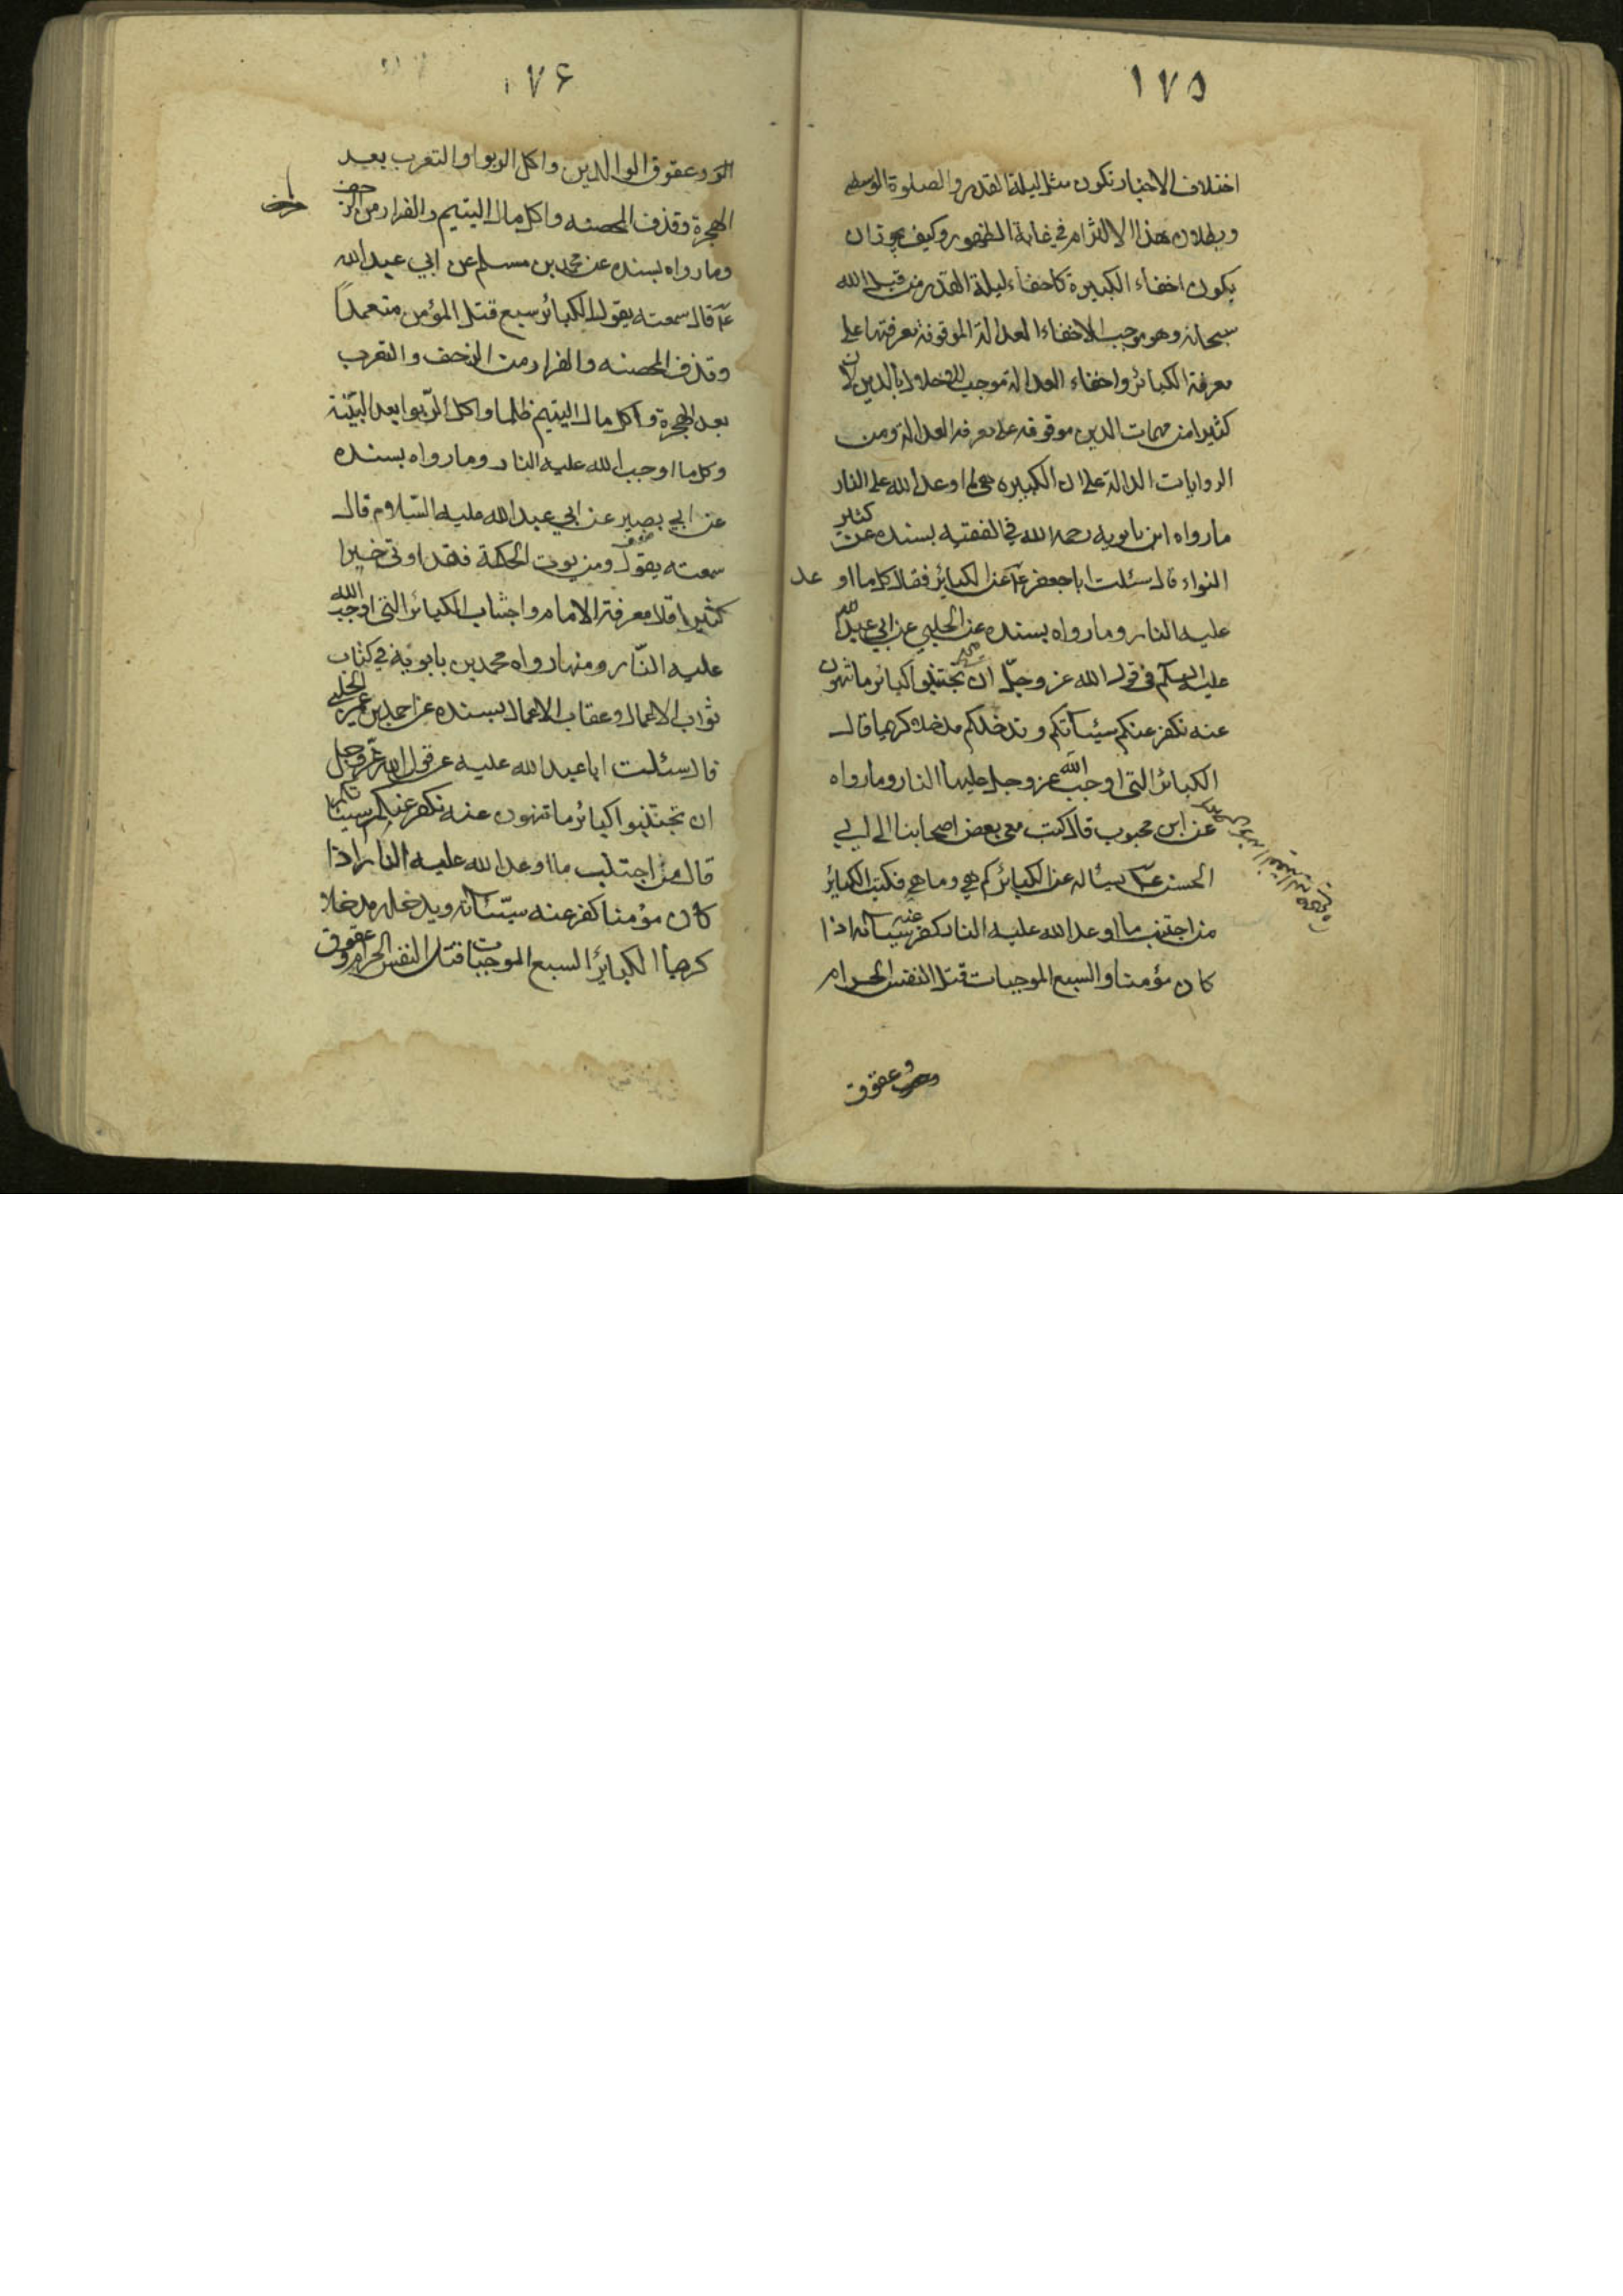 ١٧٥
اختلاف الاخبار تكون مثل ليلة القدر والصلوة الوسطى
وبطلان هذا الالتزام في غاية الظهور وكيف يجوز ان
يكون اخفاء الكبيرة كاخفاء ليلة القدر من قبل الله
سبحانه وهو موجب لاخفاء العدالة الموقوفة معرفتها على
معرفة الكبائر واخفاء العدالة موجب للاخلال بالدين لان
كثيرا من مهمات الدين موقوفه على معرفه العدالة ومن
الروايات الدالة على ان الكبيره هي ما اوعد الله على النار
ما رواه ابن بابويه رحمه الله في الفقيه بسنده عن كثير
النواء قال سئلت ابا جعفر ع عن الكبائر فقال كل ما اوعد
عليه النار وما رواه بسنده عن الحلبي عن ابي عبد الله
عليه السلم في قول الله عز وجلّ ان تجتنبوا كبائر ما تنهون
عنه نكفر عنكم سيئاتكم وندخلكم مدخلا كريما قال
الكبائر التي اوجب الله عز وجل عليها النار وما رواه
عن ابن محبوب قال كتب معي بعض اصحابنا الى ابي
الحسن ع يسئاله عن الكبائر كم هي وما هي فكتب الكبائر
من اجتنب ما اوعد الله عليه النار كفر عنه سيئاته اذا
كان مؤمنا والسبع الموجبات قتل النفس الحرام
وعقوق
١٧۶
وعقوق الوالدين واكل الربوا والتعرب بعد
الهجرة وقذف المحصنه واكل مال اليتيم والفرار من الزحف
وما رواه بسنده عن محمد بن مسلم عن ابي عبد الله
ع قال سمعته يقول الكبائر سبع قتل المؤمن متعمداً
وقذف المحصنه والفرار من الزحف والتعرب
بعد الهجرة واكل مال اليتيم ظلما واكل الرّبوا بعد البيّنة
وكل ما اوجب الله عليه النار وما رواه بسنده
عن ابي بصير عن ابي عبد الله عليه السّلام قال
سمعته يقول ومن يوت الحكمة فقد اوتي خيرا
كثيرا قال معرفة الامام واجتناب الكبائر التي اوجب الله
عليه النّار ومنها رواه محمد بن بابويه في كتاب
ثواب الاعمال وعقاب الاعمال بسنده عن احمد بن عمير الحلبي
قال سئلت ابا عبد الله عليه عن قول الله عزّ وجل
ان تجتنبوا كبائر ما تنهون عنه نكفر عنكم سيئاتكم
قال من اجتنب ما اوعد الله عليه النار اذا
كان مؤمنا كفر عنه سيّئاته ويدخله مدخلا
كريماً الكبائر السبع الموجبات قتل النفس الحرام وعقوق